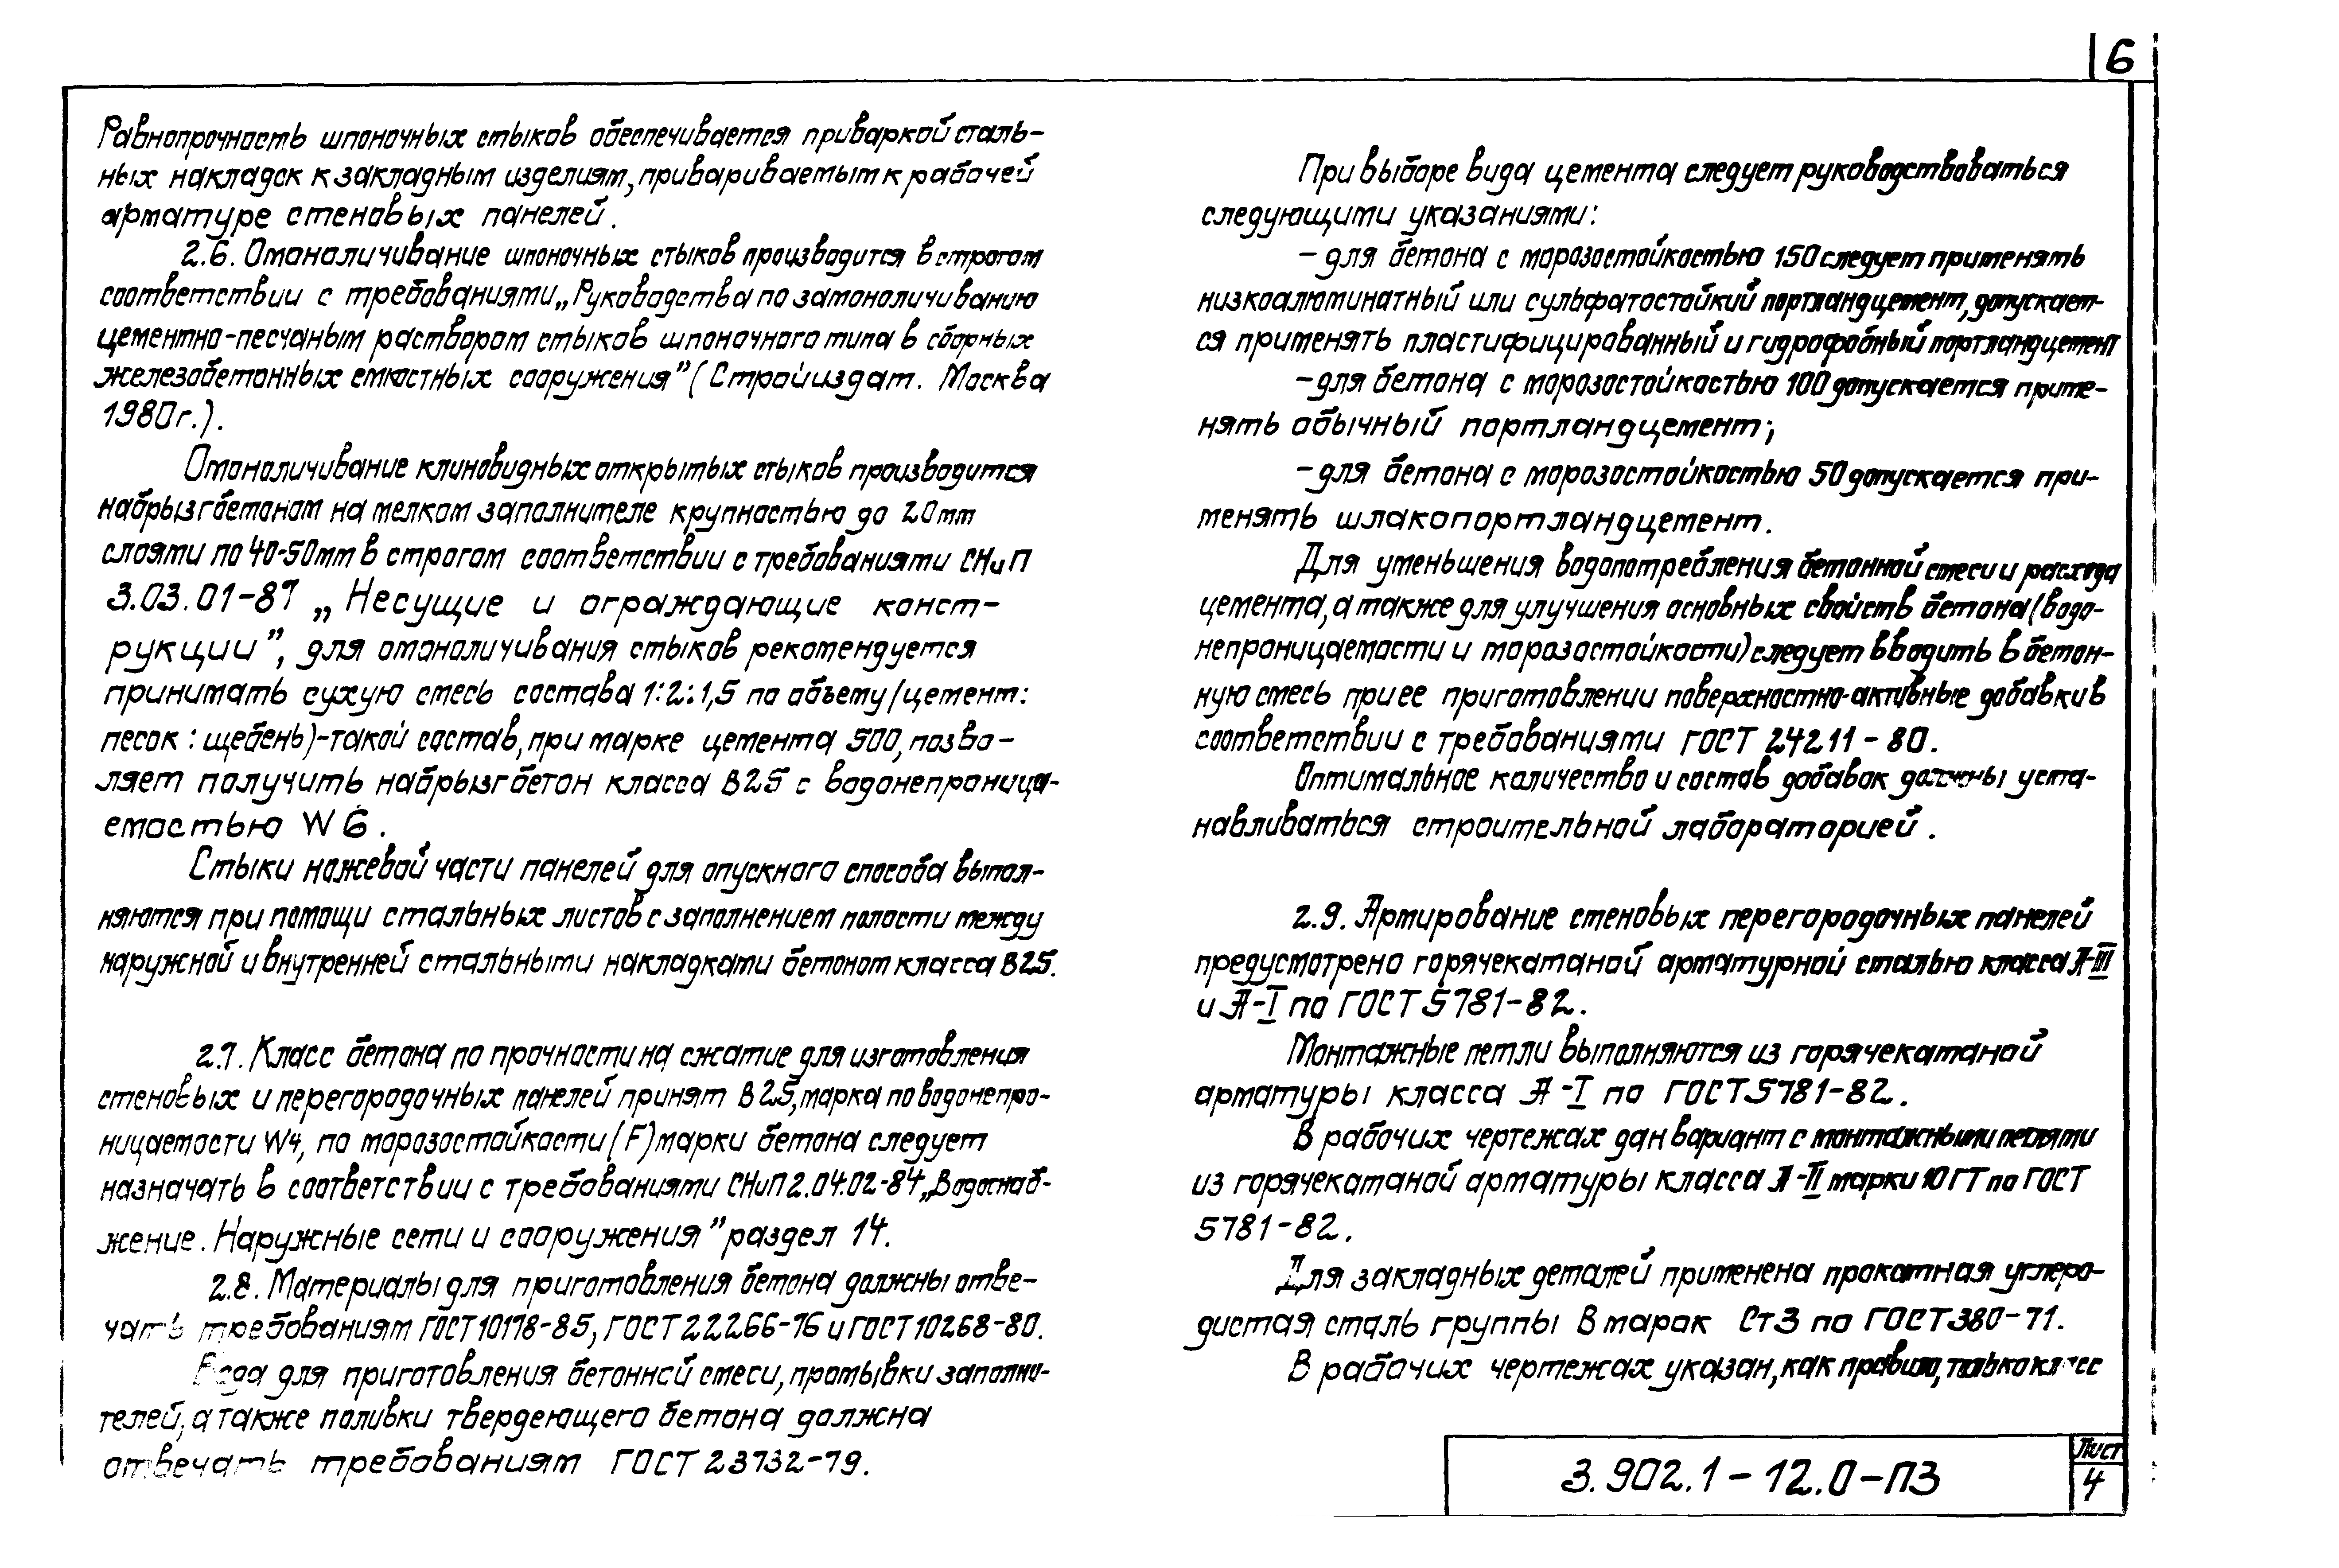 6
Равнопрочность шпоночных стыков обеспечивается приваркой сталь-
ных накладок к закладным изделиям, привариваемым к рабочей
арматуре стеновых панелей.
2.6. Омоноличивание шпоночных стыков производится в строгом
соответствии с требованиями „Руководства по замоноличиванию
цементно-песчаным раствором стыков шпоночного типа в сборных
железобетонных емкостных сооружения" (Стройиздат. Москва
1980г.).
Омоноличивание клиновидных открытых стыков производится
набрызгбетоном на мелком заполнителе крупностью до 20мм
слоями по 40-50мм в строгом соответствии с требованиями СНиП
3.03.01-87 „Несущие и ограждающие конст-
рукции", для омоноличивания стыков рекомендуется
принимать сухую смесь состава 1:2:1,5 по объему /цемент:
песок : щебень)-такой состав, при марке цемента 500, позво-
ляет получить набрызгбетон класса В25 с водонепроница-
емостью W6.
Стыки ножевой части панелей для опускного способа выпол-
няются при помощи стальных листов с заполнением полости между
наружной и внутренней стальными накладками бетоном класса В25.
2.7. Класс бетона по прочности на сжатие для изготовления
стеновых и перегородочных панелей принят В25, марка по водонепро-
ницаемости W4, по морозостойкости (F) марки бетона следует
назначать в соответствии с требованиями СНиП 2.04.02-84 „Водоснаб-
жение. Наружные сети и сооружения" раздел 14.
2.8. Материалы для приготовления бетона должны отве-
чать требованиям ГОСТ 10178-85, ГОСТ 22266-76 и ГОСТ 10268-80.
Вода для приготовления бетонной смеси, промывки заполни-
телей, а также поливки твердеющего бетона должна
отвечать требованиям ГОСТ 23732-79.
При выборе вида цемента следует руководствоваться
следующими указаниями:
- для бетона с морозостойкостью 150 следует применять
низкоалюминатный или сульфатостойкий портландцемент, допускает-
ся применять пластифицированный и гидрофобный портландцемент
- для бетона с морозостойкостью 100 допускается приме-
нять обычный портландцемент;
- для бетона с морозостойкостью 50 допускается при-
менять шлакопортландцемент.
Для уменьшения водопотребления бетонной смеси и расхода
цемента, а также для улучшения основных свойств бетона (водо-
непроницаемости и морозостойкости) следует вводить в бетон-
ную смесь при ее приготовлении поверхностно-активные добавки в
соответствии с требованиями ГОСТ 24211-80.
Оптимальное количество и состав добавок должны уста-
навливаться строительной лабораторией.
2.9. Армирование стеновых перегородочных панелей
предусмотрено горячекатаной арматурной сталью класса А-III
и А-I по ГОСТ 5781-82.
Монтажные петли выполняются из горячекатаной
арматуры класса А-I по ГОСТ 5781-82.
В рабочих чертежах дан вариант с монтажными петлями
из горячекатаной арматуры класса А-II марки 10ГТ по ГОСТ
5781-82.
Для закладных деталей применена прокатная углеро-
дистая сталь группы В марок Ст3 по ГОСТ 380-71.
В рабочих чертежах указан, как правило, только класс
3.902.1-12.0-ПЗ
Лист
4